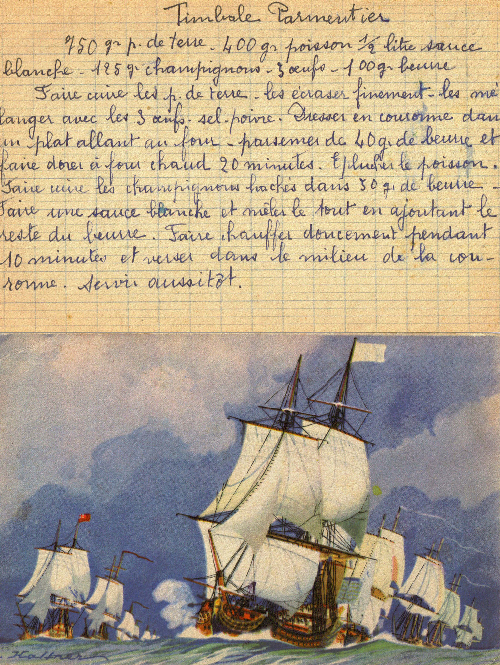 Timbale Parmentier
750 gr p. de terre - 400 gr poisson ½ litre sauce
blanche - 125 gr champignons - 3 œufs - 100 gr beurre
Faire cuire les p. de terre - les écraser finement - les mé
langer avec les 3 œufs - sel. poivre. Dresser en couronne dans
un plat allant au four - parsemer de 40 g. de beurre et
faire dorer à four chaud 20 minutes. Eplucher le poisson.
Faire cuire les champignons hachés dans 30 g. de beurre -
Faire une sauce blanche et mêler le tout en ajoutant le
reste du beurre. Faire chauffer doucement pendant
10 minutes et verser dans le milieu de la cou-
ronne. Servir aussitôt.